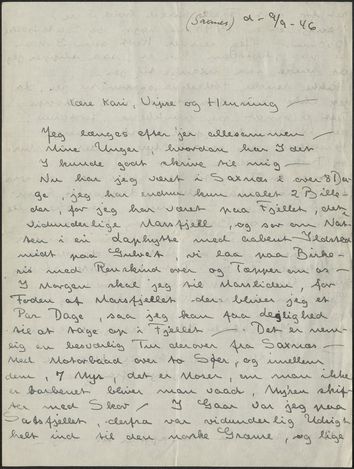 (Saxnes) d - 9/9 - 46.
Kære Kari, Vigre og Henning —
Jeg længes efter jer allesammen —
Mine Unger, hvordan har I det
I kunde godt skrive til mig —
Nu har jeg været i Saxnäs i over 8 Da-
ge, jeg har endnu kun malet 2 Bille-
der, for jeg har været paa Fjellet, det
vidunderlige Marsfjell, og sov om Nat-
ten i en Laphytte med aabent Ildsted
midt paa Gulvet vi laa paa Birke-
ris med Renskind over og Tæpper om os —
I Morgen skal jeg til Marsliden, for
Foden af Marsfjellet - der bliver jeg et
Par Dage, saa jeg kan faa Lejlighed
til at tage op i Fjellet — . Det er nem-
lig en besværlig Tur derover fra Saxnäs —
Med Motorbaad over to Søer, og imellem
dem, 7 Myr, det er Moser, om man ikke
er barbenet bliver man vaad, Myren skif-
ter med Skov — I Gaar var jeg paa
Satsfjellet, derfra var vidunderlig Udsigt
helt ind til den norske Grænse, og lige